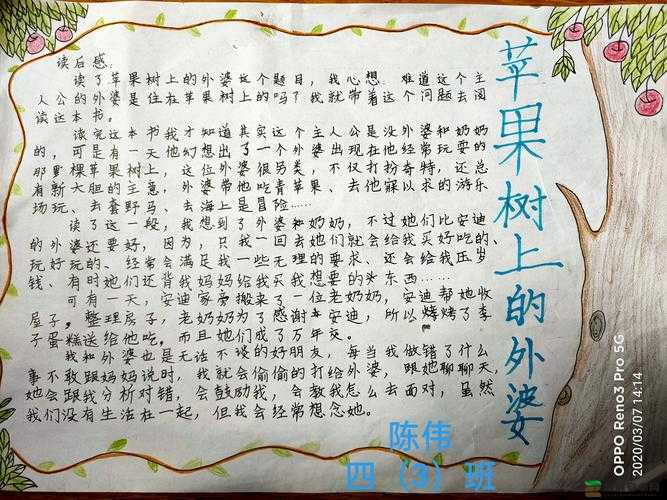 苹果树上的外婆
读后感:
读了苹果树上的外婆这个题目，我心想，难道这个主
人公的外婆是住在苹果树上的吗？我就带着这个问题去阅
读这本书。
读完这本书我才知道其实这个主人公是没外婆和奶奶
的，可是有一天他幻想出了一个外婆出现在他经常玩耍的
那里棵苹果树上，这位外婆很另类，不仅打扮奇特，还总
有新大胆的主意，外婆带他吃青苹果、去他寐以求的游乐
场玩、去套野马、去海上是冒险……
读了这一段，我想到了外婆和奶奶，不过她们比安迪
的外婆还要好，因为，只我一回去她们就会给我买好吃的、
玩好玩的、经常会满足我一些无理的要求、还会给我压岁
钱、有时她们还背我妈妈给我买我想要的东西……
可有一天，安迪家旁搬来了一位老奶奶，安迪帮她收
屋子，整理房子，老奶奶为了感谢安迪，所以烤了李
子蛋糕送给他吃，而且她们成了万年交。
我和外婆也是无话不谈的好朋友，每当我做错了什么
事不敢跟妈妈说时，我就会偷偷的打给外婆，跟她聊聊天，
她会跟我分析对错，会鼓励我，会教我怎么去面对，虽然
我们没有生活在一起，但我会经常想念她。
陈伟
四（3）班
OPPO Reno3 Pro 5G
2020/03/07 14:14